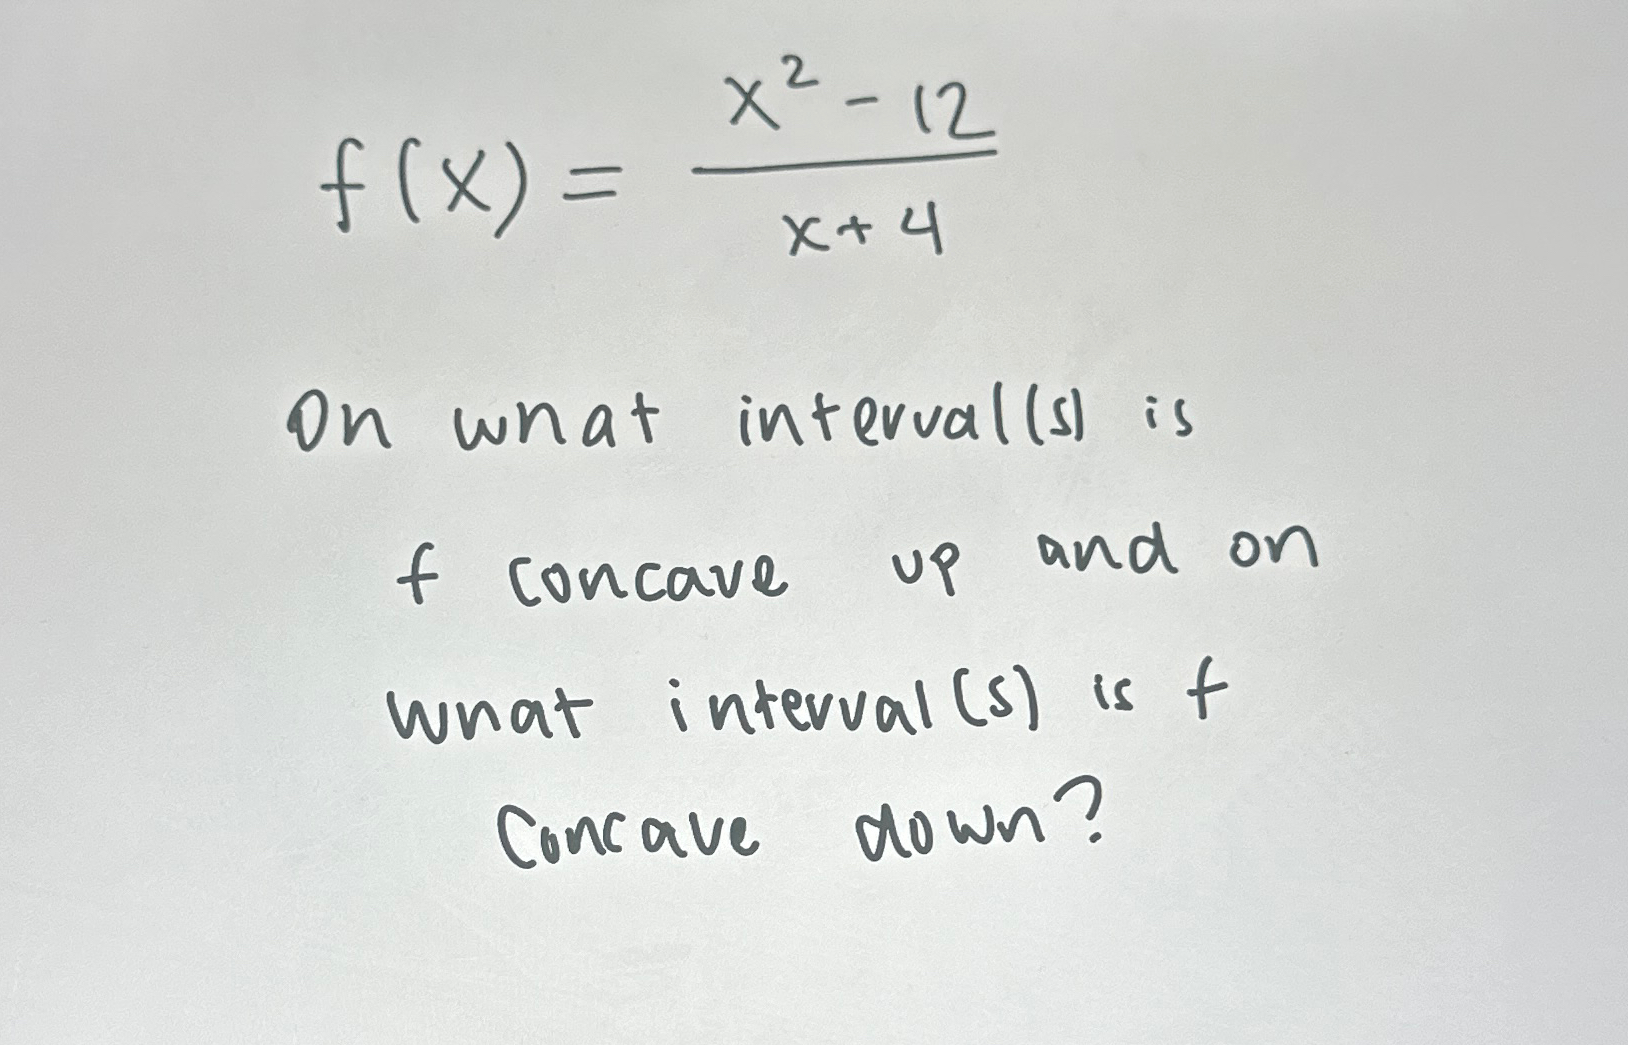 f(x) = \frac{x^2 - 12}{x + 4}
On what interval(s) is
f concave up and on
what interval(s) is f
concave down?